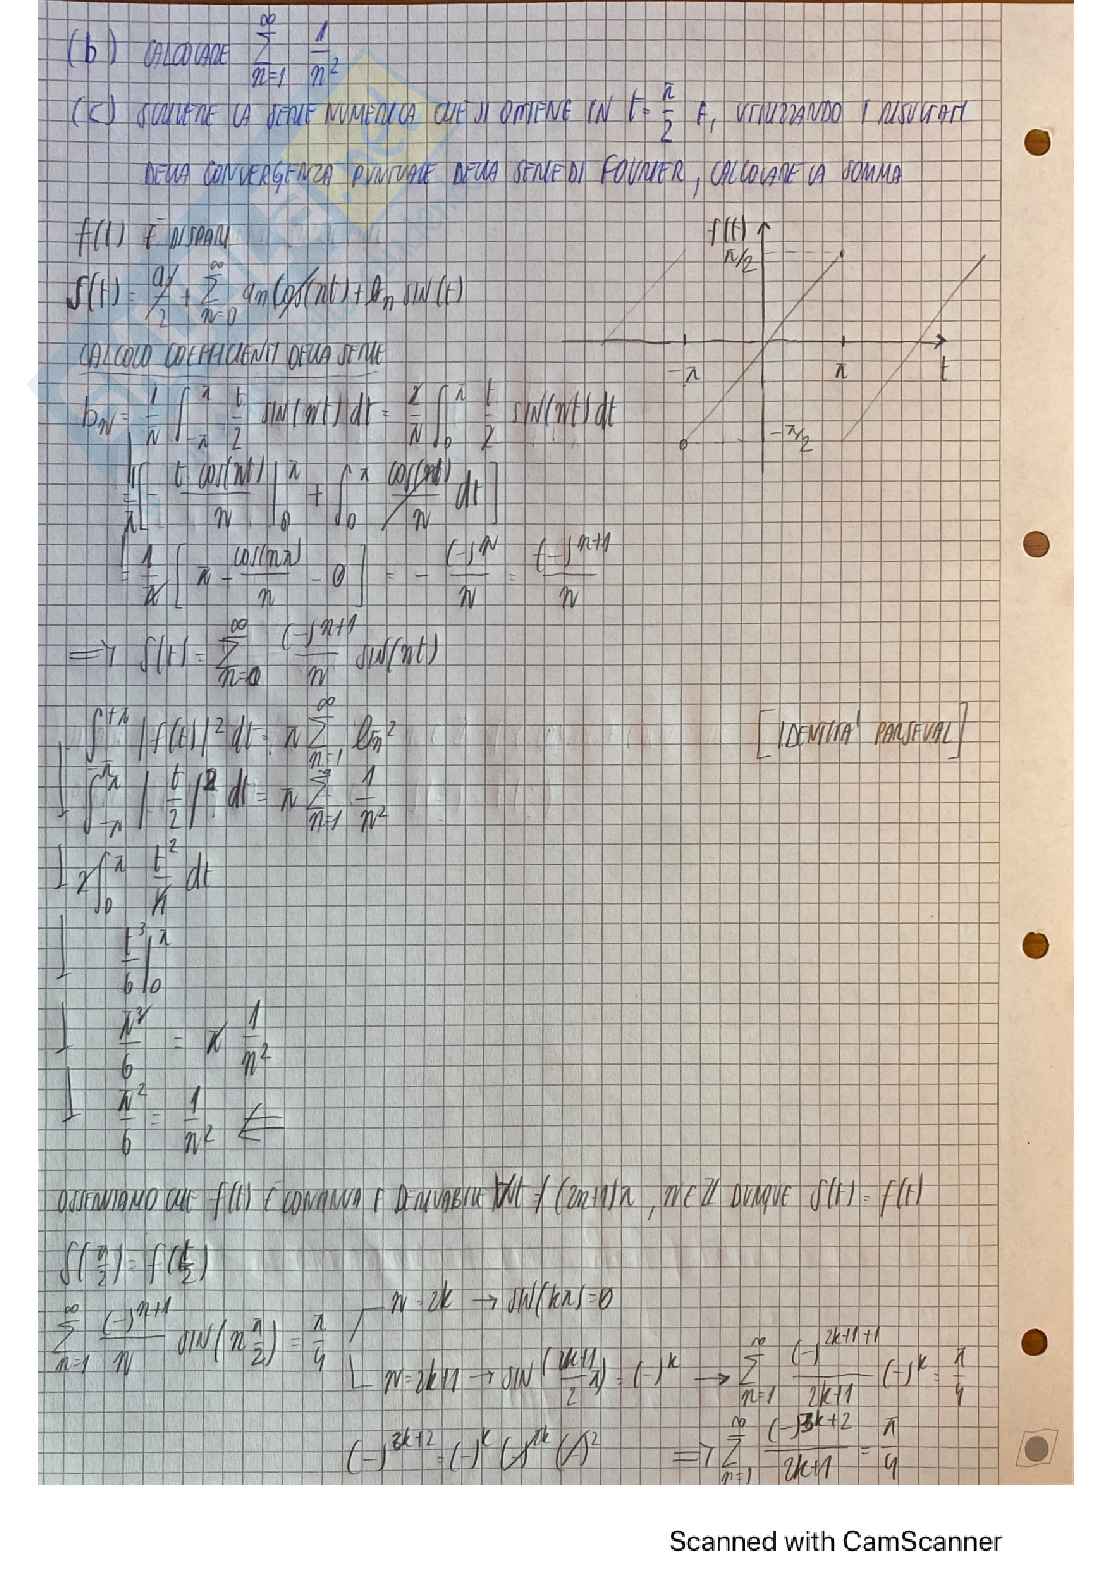 (b) CALCOLARE ∑_{n=1}^{∞} 1/n²
(C) SCRIVERE LA SERIE NUMERICA CHE SI OTTIENE IN t = π/2 E, UTILIZZANDO I RISULTATI
DELLA CONVERGENZA PUNTUALE DELLA SERIE DI FOURIER, CALCOLARE LA SOMMA
f(t) È DISPARI
f(t)
π/2
-π
π
t
-π/2
S(t) = a/2 + ∑_{n=0}^{∞} an cos(nt) + bn sin(t)
CALCOLO COEFFICIENTI DELLA SERIE
bn = 1/π ∫_{-π}^{π} t/2 sin(nt) dt = 2/π ∫_{0}^{π} t/2 sin(nt) dt
= 1/π [ - t cos(nt)/n |_{0}^{π} + ∫_{0}^{π} cos(nt)/n dt ]
= 1/π [ π - cos(nπ)/n - 0 ] = - (-)^n/n = (-)^{n+1}/n
=> S(t) = ∑_{n=0}^{∞} (-)^{n+1}/n sin(nt)
∫_{-π}^{+π} |f(t)|² dt = π ∑_{n=1}^{∞} bn² [IDENTITA' PARSEVAL]
∫_{-π}^{π} |t/2|² dt = π ∑_{n=1}^{∞} 1/n²
2 ∫_{0}^{π} t²/4 dt
t³/6 |_{0}^{π}
π³/6 = π 1/n²
π²/6 = 1/n² ⇐
OSSERVIAMO CHE f(t) È CONTINUA E DERIVABILE ∀t ≠ (2n+1)π, n∈ℤ DUNQUE S(t) = f(t)
S(π/2) = f(π/2)
∑_{n=1}^{∞} (-)^{n+1}/n sin(n π/2) = π/4
n = 2k → sin(kπ) = 0
n = 2k+1 → sin((2k+1)/2 π) = (-)^k → ∑_{n=1}^{∞} (-)^{2k+1+1}/(2k+1) (-)^k = π/4
(-)^{3k+2} = (-)^k (-)^{2k} (-)² => ∑_{n=1}^{∞} (-)^{3k+2}/(2k+1) = π/4
Scanned with CamScanner